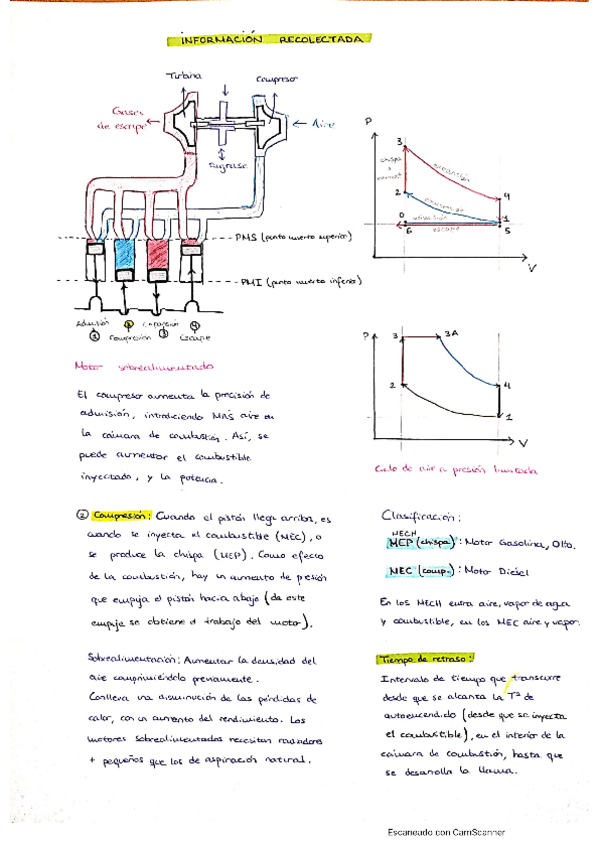 INFORMACIÓN RECOLECTADA
Turbina
Compresor
Gases
de escape
Aire
Engrase
PMS (punto muerto superior)
PMI (punto muerto inferior)
Admisión
Compresión
Expansión
Escape
1
2
3
4
P
3
chispa
expansión
2
4
compresión
0
admisión
1
6
escape
5
V
Motor sobrealimentado
El compresor aumenta la precisión de
admisión, introduciendo MÁS aire en
la cámara de combustión. Así, se
puede aumentar el combustible
inyectado, y la potencia.
P
3
3A
2
4
1
V
Ciclo de aire a presión limitada
② Compresión: Cuando el pistón llega arriba, es
cuando se inyecta el combustible (MEC), o
se produce la chispa (MEP). Como efecto
de la combustión, hay un aumento de presión
que empuja el pistón hacia abajo (de este
empuje se obtiene el trabajo del motor).
Sobrealimentación: Aumentar la densidad del
aire comprimiéndolo previamente.
Conlleva una disminución de las pérdidas de
calor, con un aumento del rendimiento. Los
motores sobrealimentados necesitan radiadores
+ pequeños que los de aspiración natural.
Clasificación:
MECH
MEP (chispa): Motor Gasolina, Otto.
MEC (comp.): Motor Diésel
En los MECH entra aire, vapor de agua
y combustible, en los MEC aire y vapor.
Tiempo de retraso:
Intervalo de tiempo que transcurre
desde que se alcanza la Tª de
autoencendido (desde que se inyecta
el combustible), en el interior de la
cámara de combustión, hasta que
se desarrolla la llama.
Escaneado con CamScanner